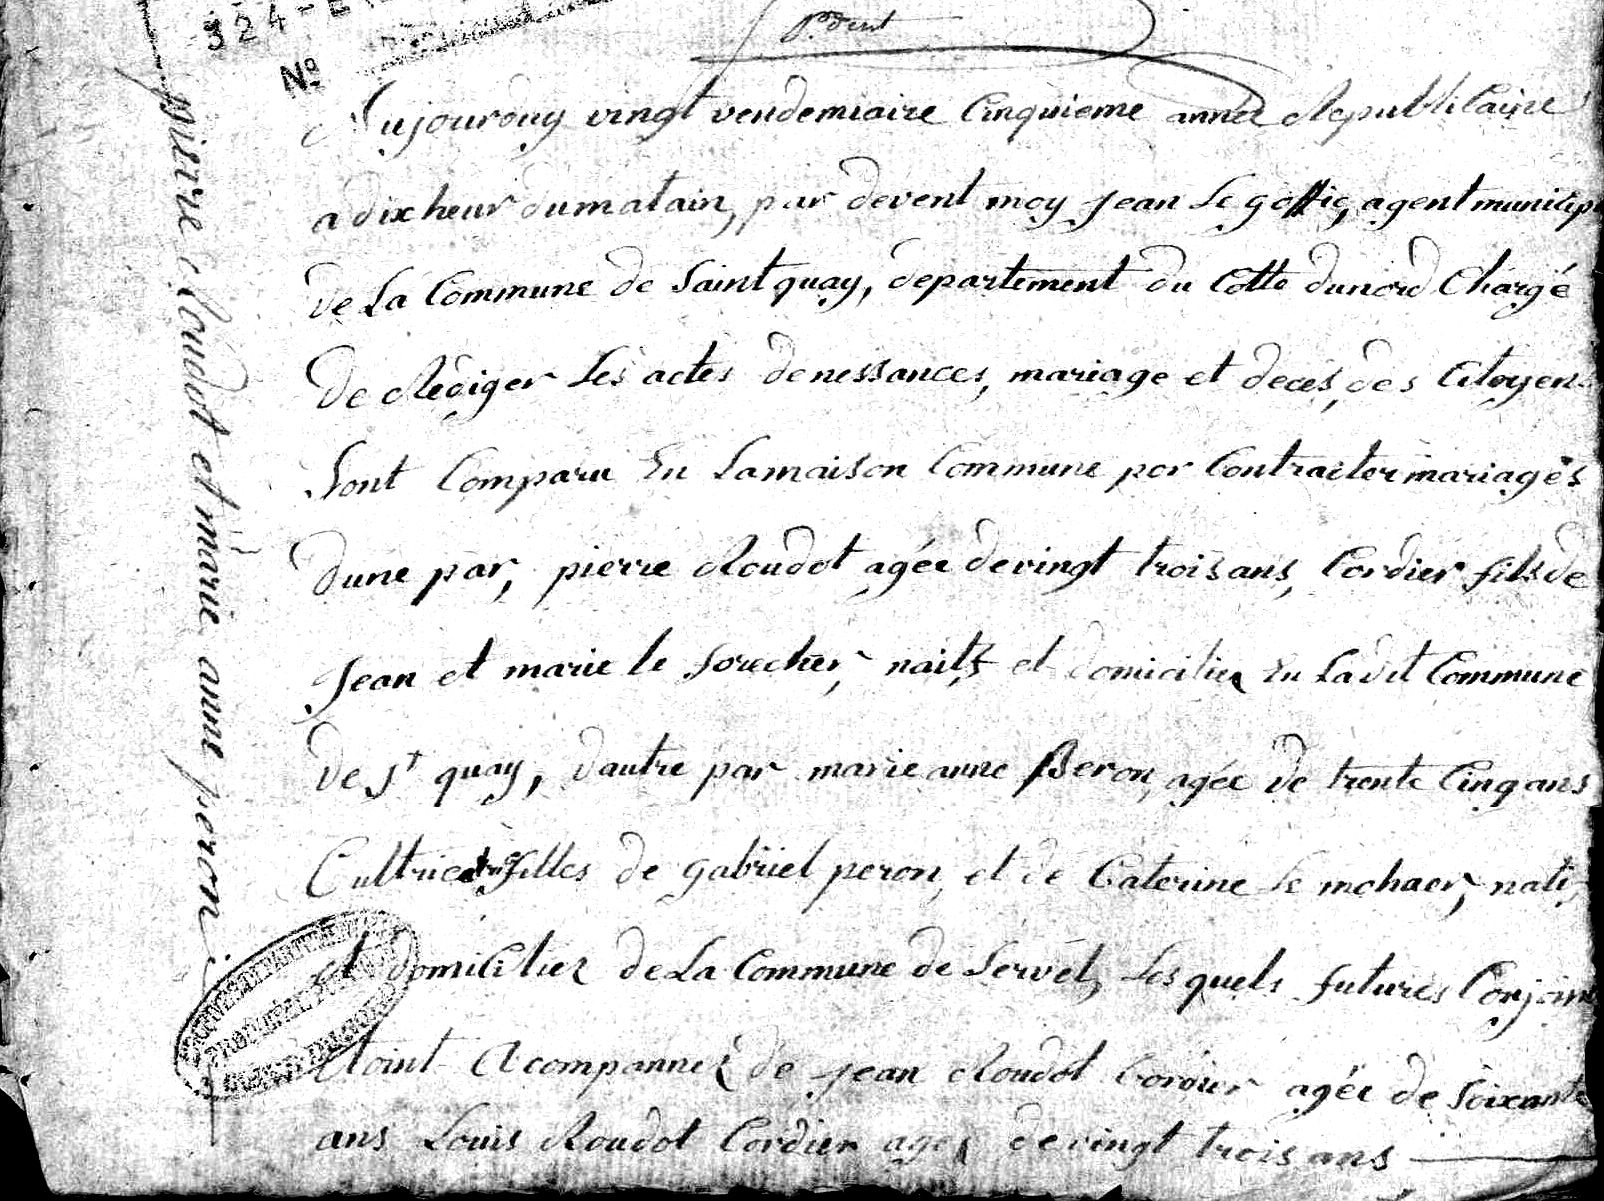 324-E
Nº
Pdent
pierre Roudot et marie anne peron
Aujourduy vingt vendemiaire Cinquieme année Republicaine
a dix heur dumatain, par devent moy jean Le goffic, agent municip
de La Commune de Saint quay, departement du Cotte dunord Chargé
de Rédiger Les actes denessances, mariage et deces, des Citoyen
Sont Comparu En Lamaison Commune por Contracter mariages
dune par, pierre Roudot agée devingt trois ans, Cordier fils de
Jean et marie le , naits et domicilier En Ladit Commune
de St quay, dautre par marie anne Beron, agée de trente Cinq ans
Cultrice filles de gabriel peron, et de Caterine Le mohaer, natis
et domicilier de La Commune de Servel, Lesquels futures Conjoin
Etoint Acompannez de jean Roudot Cordier agée de Soixante
ans Louis Roudot Cordier agez devingt trois ans